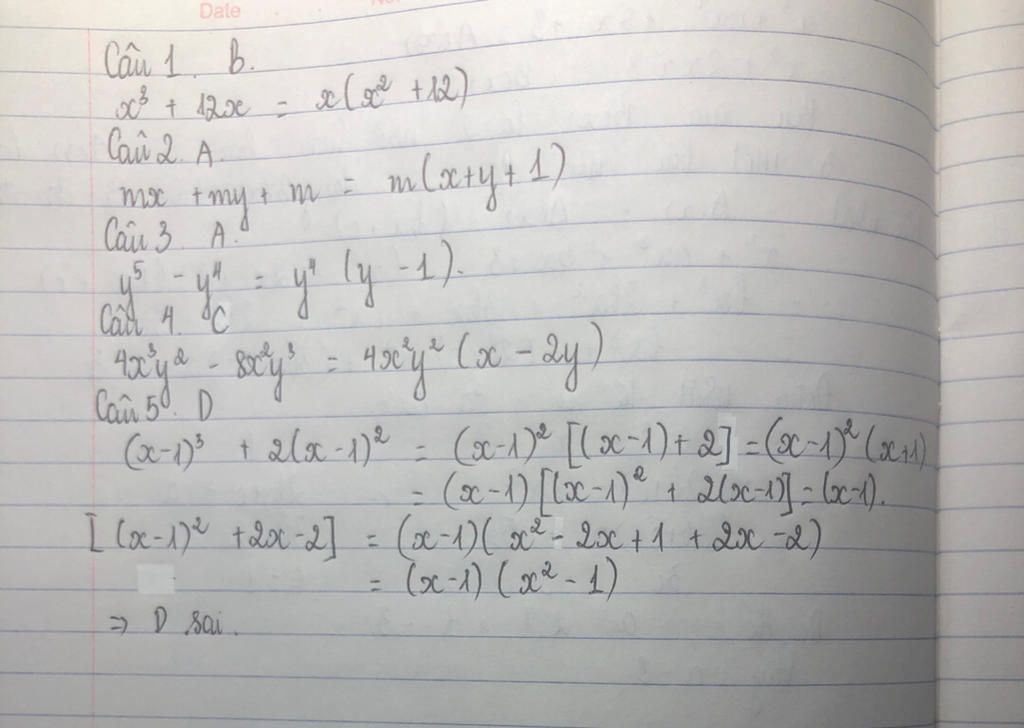 Date
Câu 1. B.
x³ + 12x = x(x² + 12)
Câu 2. A.
mx + my + m = m(x+y+1)
Câu 3. A.
y⁵ - y⁴ = y⁴ (y - 1).
Câu 4. C
4x³y² - 8x²y³ = 4x²y² (x - 2y)
Câu 5. D
(x-1)³ + 2(x-1)² = (x-1)² [(x-1)+2] = (x-1)² (x+1)
= (x-1) [(x-1)² + 2(x-1)] = (x-1).
[(x-1)² + 2x-2] = (x-1)( x² - 2x + 1 + 2x - 2)
= (x-1) (x² - 1)
⇒ D sai.